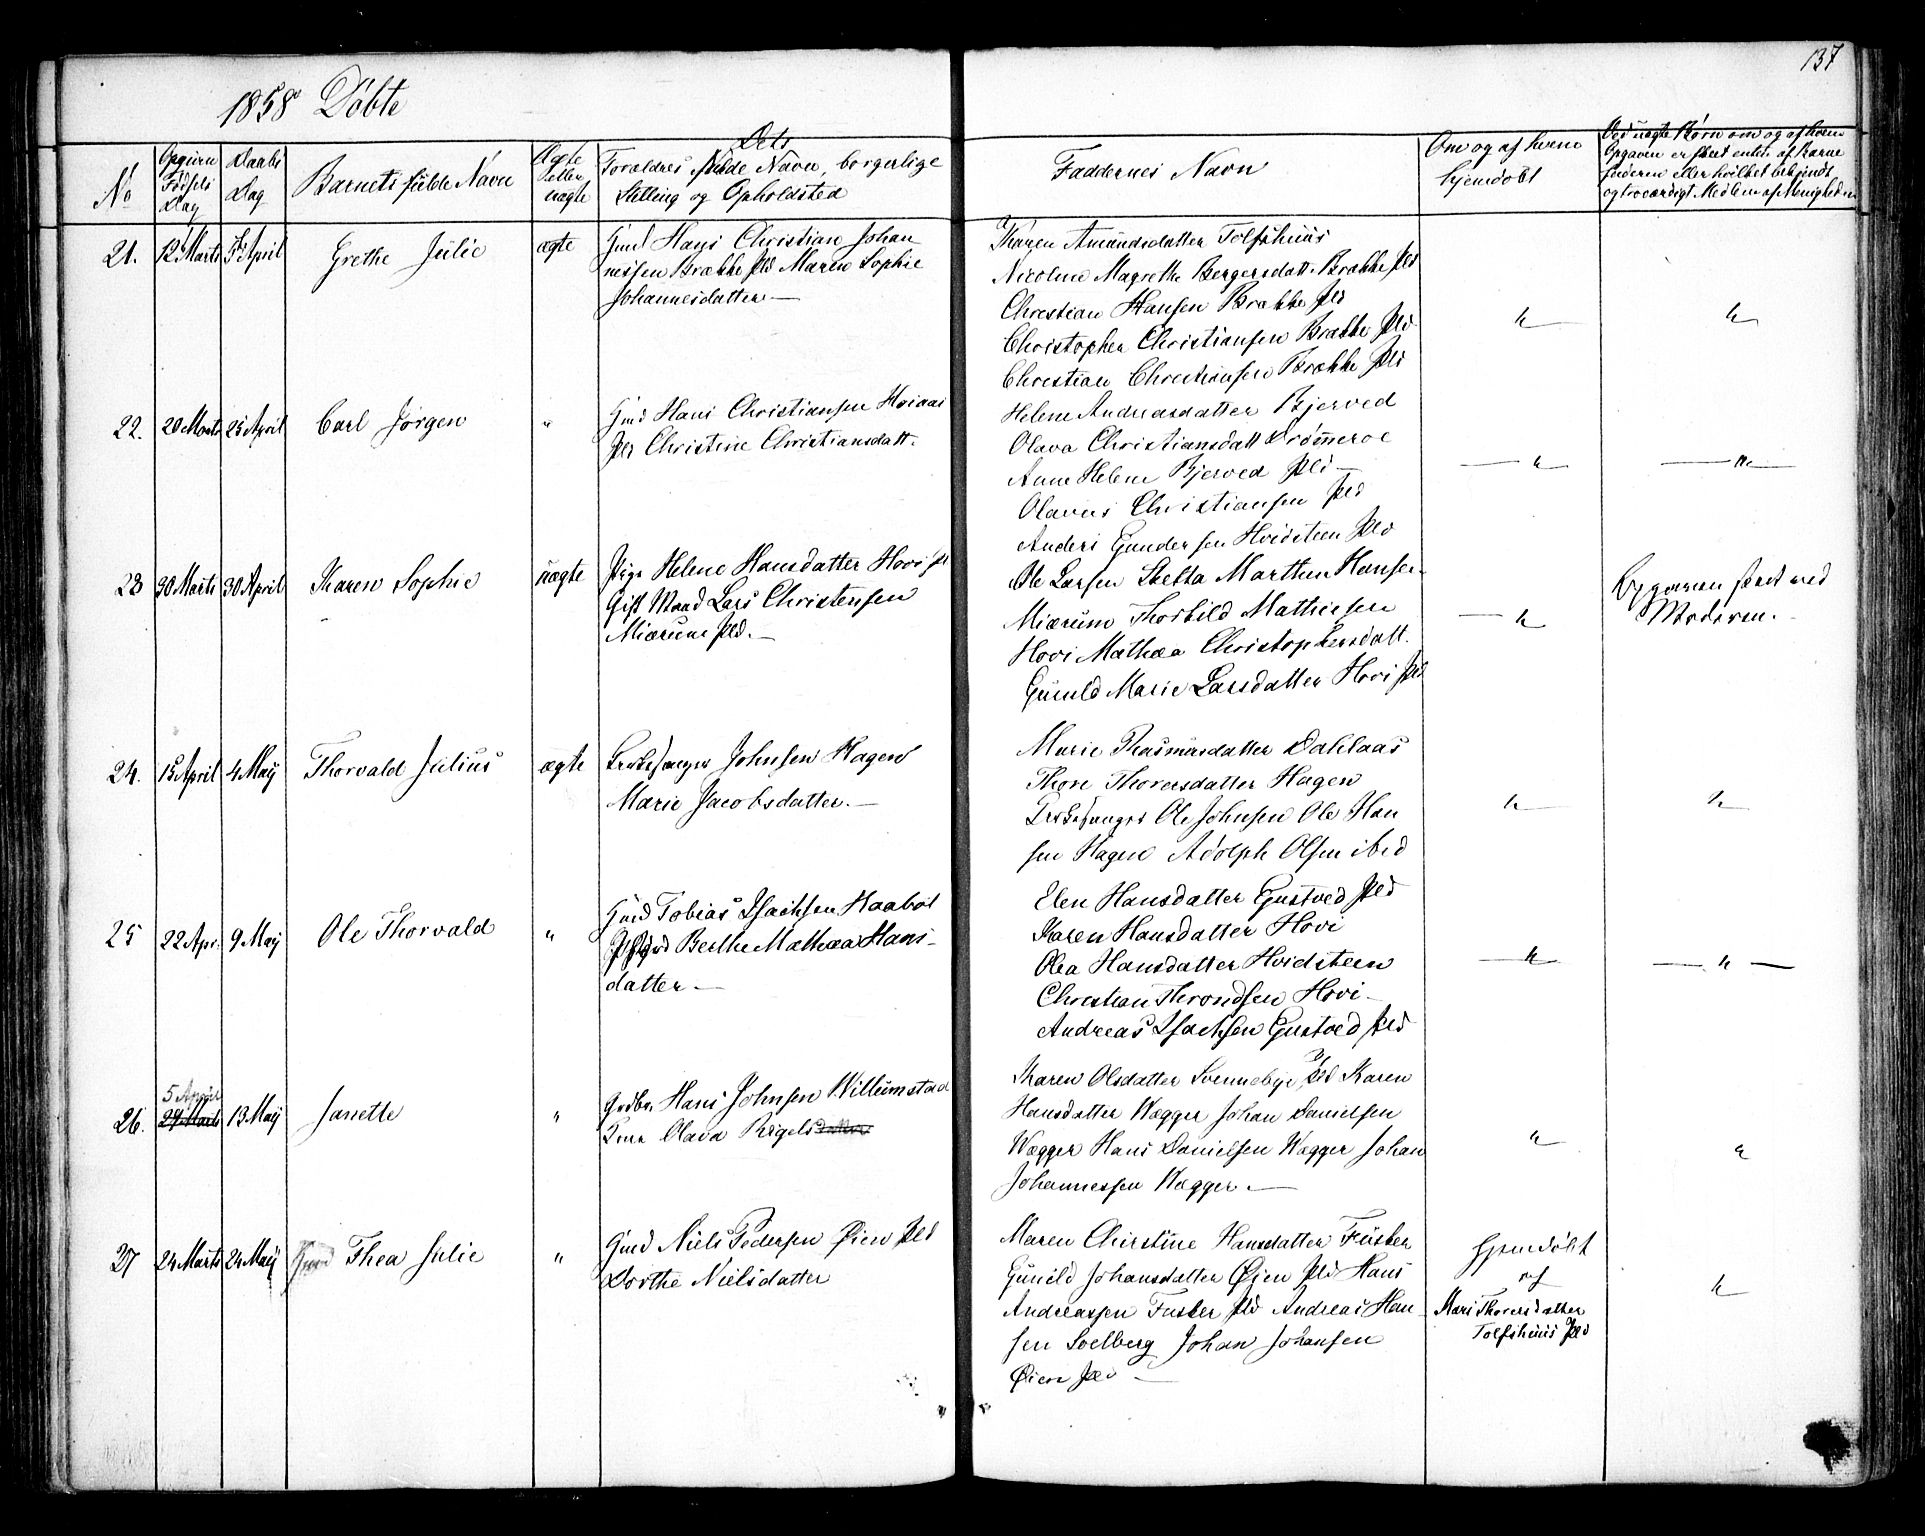 137
1858 Döbte
No
Opgiven Födsels Dag
Daabs Dag
Barnets fulde Navn
Ægte eller uægte
Dets
Foræeldres fulde Navn, borgerlige
Stilling og Opholdsted
Faddernes Navn
Om og af hvem
hjemdöbt
Ved uægte Börn om og af hvem
Opgaven er skeet enten af Barne
faderen eller hvilket bekjendt
og troværdigt Medlem af Menigheden
21. 12 Marts 5 April Grethe Julie ægte
Gmd Hans Christian Johan
nessen Brække Pld Maren Sophie
Johannesdatter.—
Karen Amundsdatter Tolfshuus
Nicoline Magrethe Bergersdatt. Brække Pld
Christian Hansen Brække Pld
Christopher Christiansen Brække Pld
Christian Christiansen Brække Pld
22. 20 Marts 25 April Carl Jörgen "
Gmd Hans Christiansen Hviaas
Pld Christine Christiansdatt.
Helene Andreasdatter Bjerved
Olava Christiansdatt Drömeroe
Anne Helene Bjerved Pld —
Olavus Christiansen Pld
Anders Gundersen Hvidsteen Pld
23 30 Marts 30 April Karen Sophie uægte
Pige Helene Hansdatter Hovi Pl
Gift Mand Lars Christensen
Miærum Pld.—
Ole Larsen Marthin Hansen
Miærum Thorbild Mathiesen
Hovi Mathea Christophersdatt.
Gunild Marie Larsdatter Hovi Pld
Opgaven skeet ved
Moderen.
24. 15 April 4 Maij Thorvald Julius ægte
Johnsen Hagen
Marie Jacobsdatter.—
Marie Rasmusdatter Dahlaas
Thore Thorersdatter Hagen
Ole Johnsen Ole Han
sen Hagen Adolph Olsen ibid
25 22 Apr. 9 Maij Ole Thorvald "
Gmd Tobias Isachsen Haaböl
Berthe Mathea Hans-
datter —
Elen Hansdatter Gustved Pld
Karen Hansdatter Hovi
Olea Hansdatter Hvidsteen
Christian Throndsen Hovi —
Andreas Isachsen Gustved Pld
5 April
26. 27 Marts 13 Maij Janette "
Grdbr. Hans Johnsen Willumstad
Olava Bigels datter
Karen Olsdatter Svennebye Pld Karen
Hansdatter Wægger Johan Danielsen
Wægger Hans Danielsen Wægger Johan
Johannessen Wægger.—
27 24 Marts 24 Maij Thea Julie "
Gmd Niels Pedersen Øien Pld
Dorthe Nielsdatter
Maren Christine Hansdatter Fusker
Gunild Johansdatter Øien Pld Hans
Andreassen Fusker Pld Andreas Han
sen Soelberg Johan Johansen
Øien Pld —
hjemdöbt
af
Mari Thorersdatter
Tolfshuus Pld